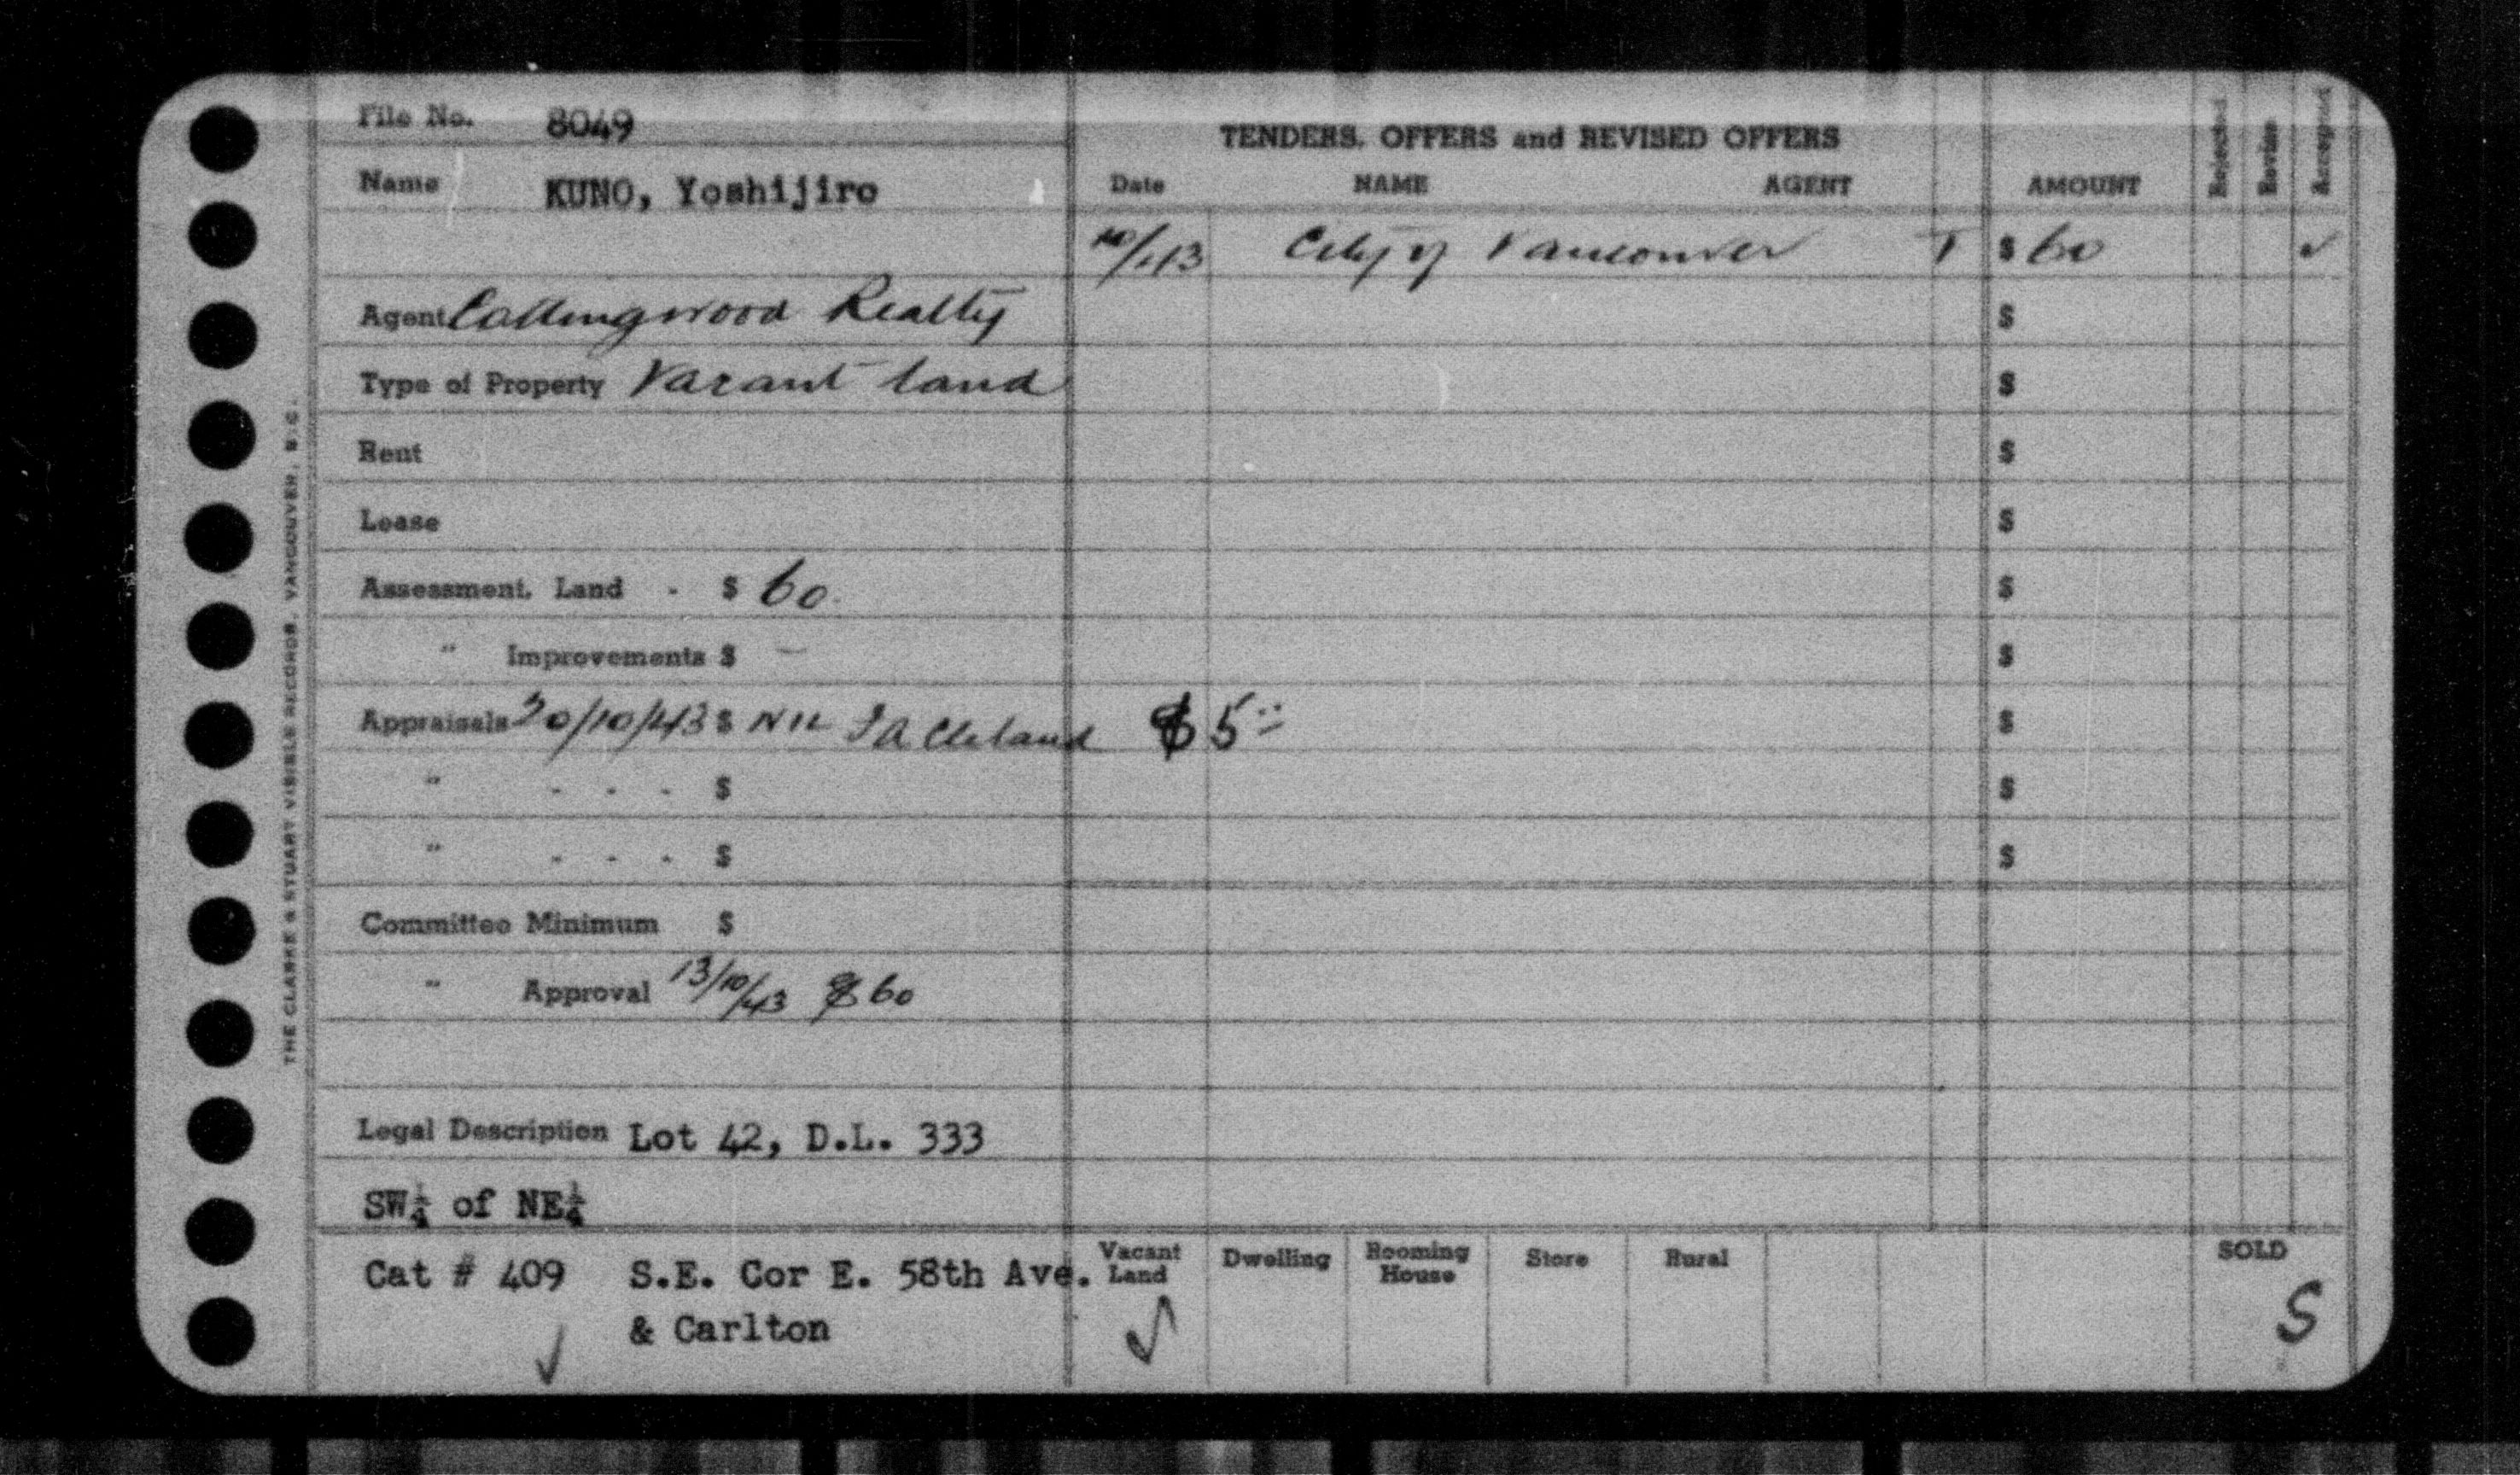 File No. 8049
Name KUNO, Yoshijiro
Agent Collingwood Realty
Type of Property Vacant land
Rent
Lease
Assessment, Land - $ 60.
" Improvements $ —
Appraisals 20/10/43 $ NIL Cleland $5
" - - - $
" - - - $
Committee Minimum $
" Approval 13/10/43 $60
Legal Description Lot 42, D.L. 333
SW¼ of NE¼
Cat # 409 S.E. Cor E. 58th Ave.
& Carlton
✓
THE CLARKE & STUART VISIBLE RECORDR, VANCOUVER, B.C.
TENDERS, OFFERS and REVISED OFFERS
Date NAME AGENT AMOUNT Rejected Revise Accepted
City of Vancouver T $ 60 ✓
$
$
$
$
$
$
$
$
$
Vacant Land Dwelling Rooming House Store Rural SOLD
✓ S